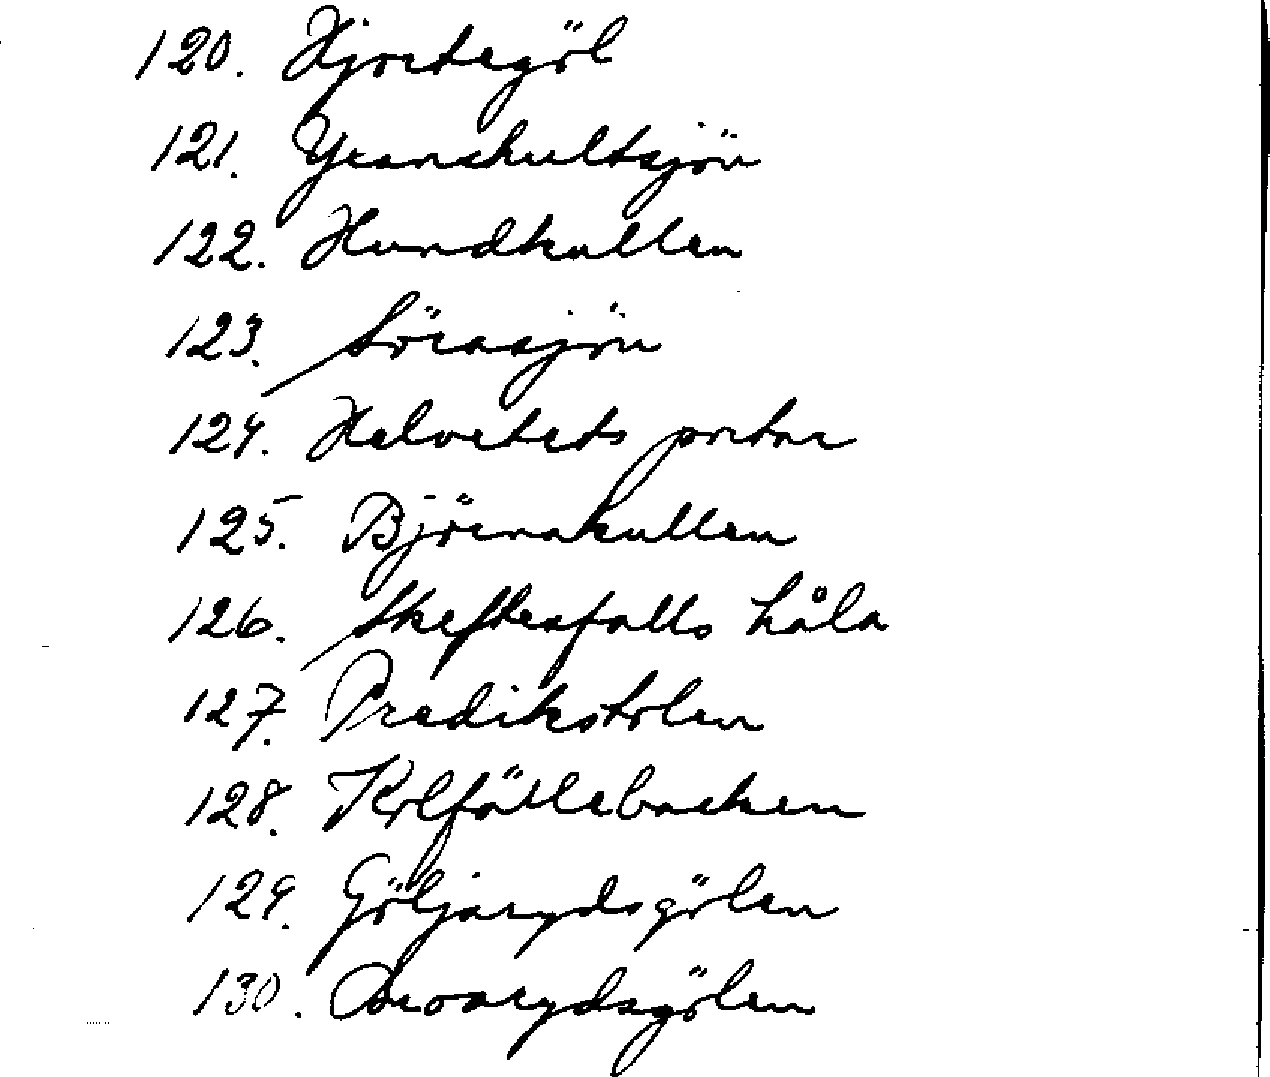 120. Hjortegöl
121. Yranshultsjön
122. Hundkullen
123. Sörasjön
124. Helvetets portar
125. Björnakullen
126. Skeftesfalls håla
127. Predikstolen
128. Kolfällebacken
129. Göljarydsgölen
130. Broarydsgölen